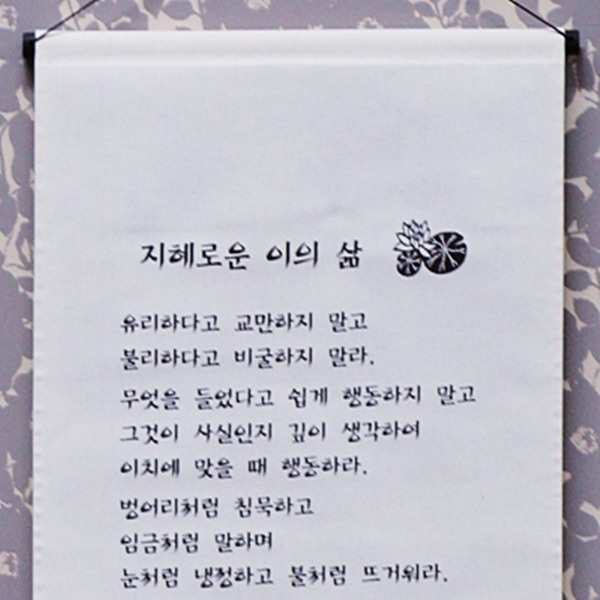 지혜로운 이의 삶
유리하다고 교만하지 말고
불리하다고 비굴하지 말라.
무엇을 들었다고 쉽게 행동하지 말고
그것이 사실인지 깊이 생각하여
이치에 맞을 때 행동하라.
벙어리처럼 침묵하고
임금처럼 말하며
눈처럼 냉정하고 불처럼 뜨거워라.